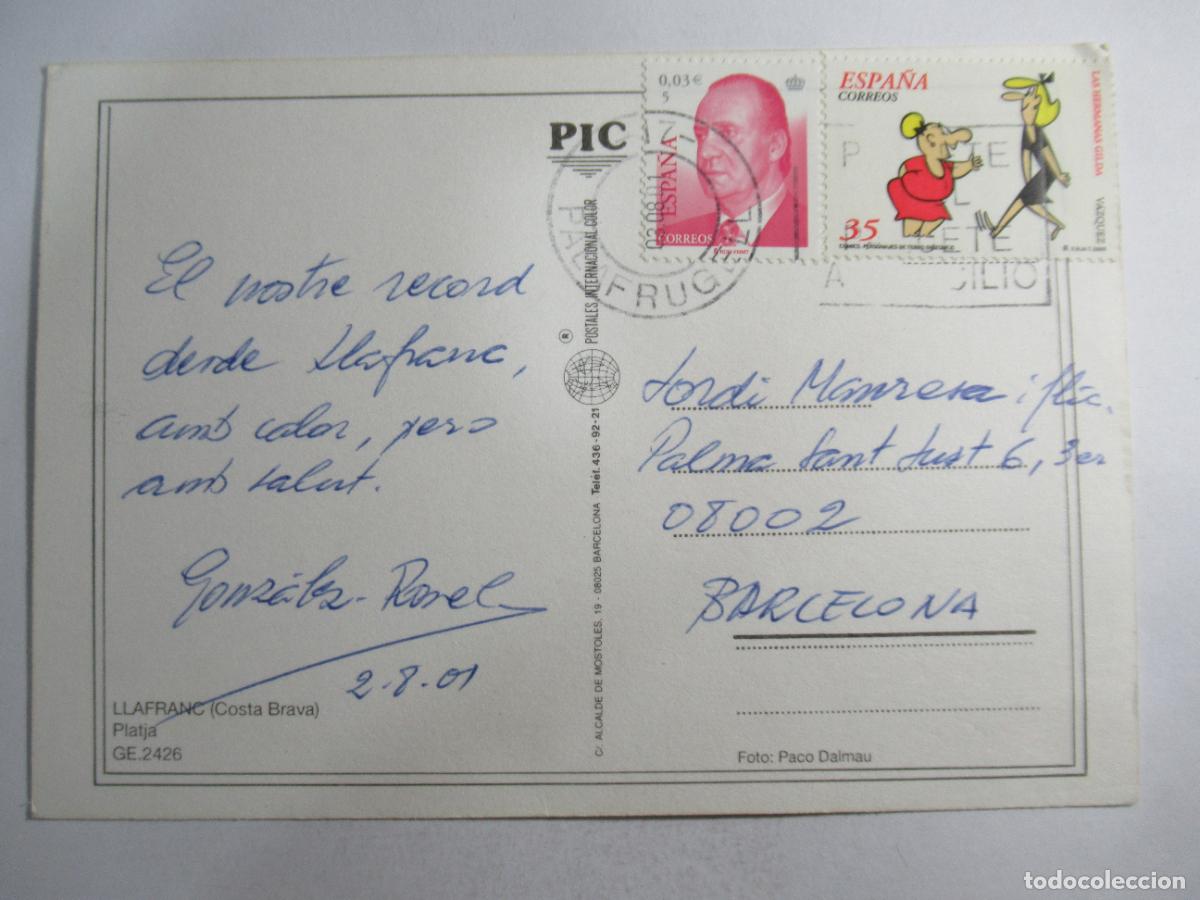 PIC
El nostre record
desde Llafranc,
amb calor, pero
amb salut.
González-Rosel
2-8-01
LLAFRANC (Costa Brava)
Platja
GE.2426
C/. ALCALDE DE MOSTOLES, 19 - 08025 BARCELONA Teléf. 436-92-21
® POSTALES INTERNACIONAL COLOR
0,03 €
5
ESPAÑA
CORREOS
03.08.01
PALAFRUGELL
ESPAÑA
CORREOS
35
LAS HERMANAS GILDA
VÁZQUEZ
COMICS. PERSONAJES DE TEBEO
Jordi Manresa i
Palma Sant Just 6, 3er
08002
BARCELONA
Foto: Paco Dalmau
todocoleccion